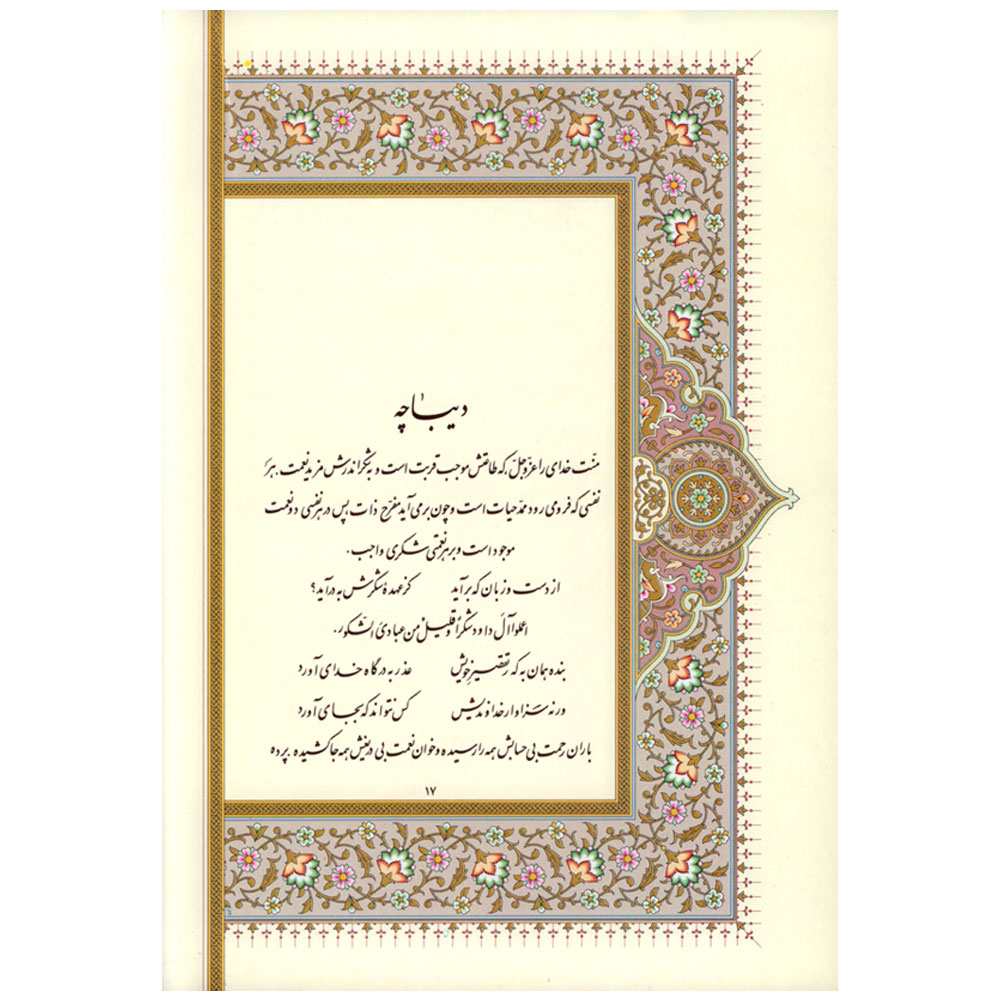 دیباچه
منّت خدای را عزّ و جلّ، که طاعتش موجب قربت است و به شکر اندرش مزید نعمت. هر
نفسی که فرو می رود ممدّ حیات است و چون بر می آید مفرّح ذات، پس در هر نفسی دو نعمت
موجود است و بر هر نعمتی شکری واجب.
از دست و زبان که برآید کز عهدهٔ شکرش به درآید؟
اعملوا آلَ داود شکراً و قلیل من عبادیَ الشّکور.
بنده همان به که ز تقصیر خویش عذر به درگاه خدای آورد
ورنه سزاوار خداوندیش کس نتواند که بجای آورد
باران رحمت بی حسابش همه را رسیده و خوان نعمت بی دریغش همه جا کشیده. پرده
۱۷